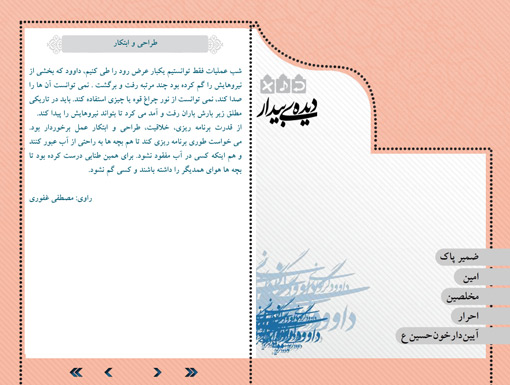 طراحی و ابتکار
شب عملیات فقط توانستیم یکبار عرض رود را طی کنیم، داوود که بخشی از
نیروهایش را گم کرده بود چند مرتبه رفت و برگشت . نمی توانست آن ها را
صدا کند، نمی توانست از نور چراغ قوه یا چیزی استفاده کند. باید در تاریکی
مطلق زیر بارش باران رفت و آمد می کرد تا بتواند نیروهایش را پیدا کند.
از قدرت برنامه ریزی، خلاقیت، طراحی و ابتکار عمل برخوردار بود.
می خواست طوری برنامه ریزی کند تا هم بچه ها به راحتی از آب عبور کنند
و هم اینکه کسی در آب مفقود نشود. برای همین طنابی درست کرده بود تا
بچه ها هوای همدیگر را داشته باشند و کسی گم نشود.
راوی: مصطفی غفوری
دیده بیدار
ضمیر پاک
امین
مخلصین
احرار
آیین دار خون حسین ع